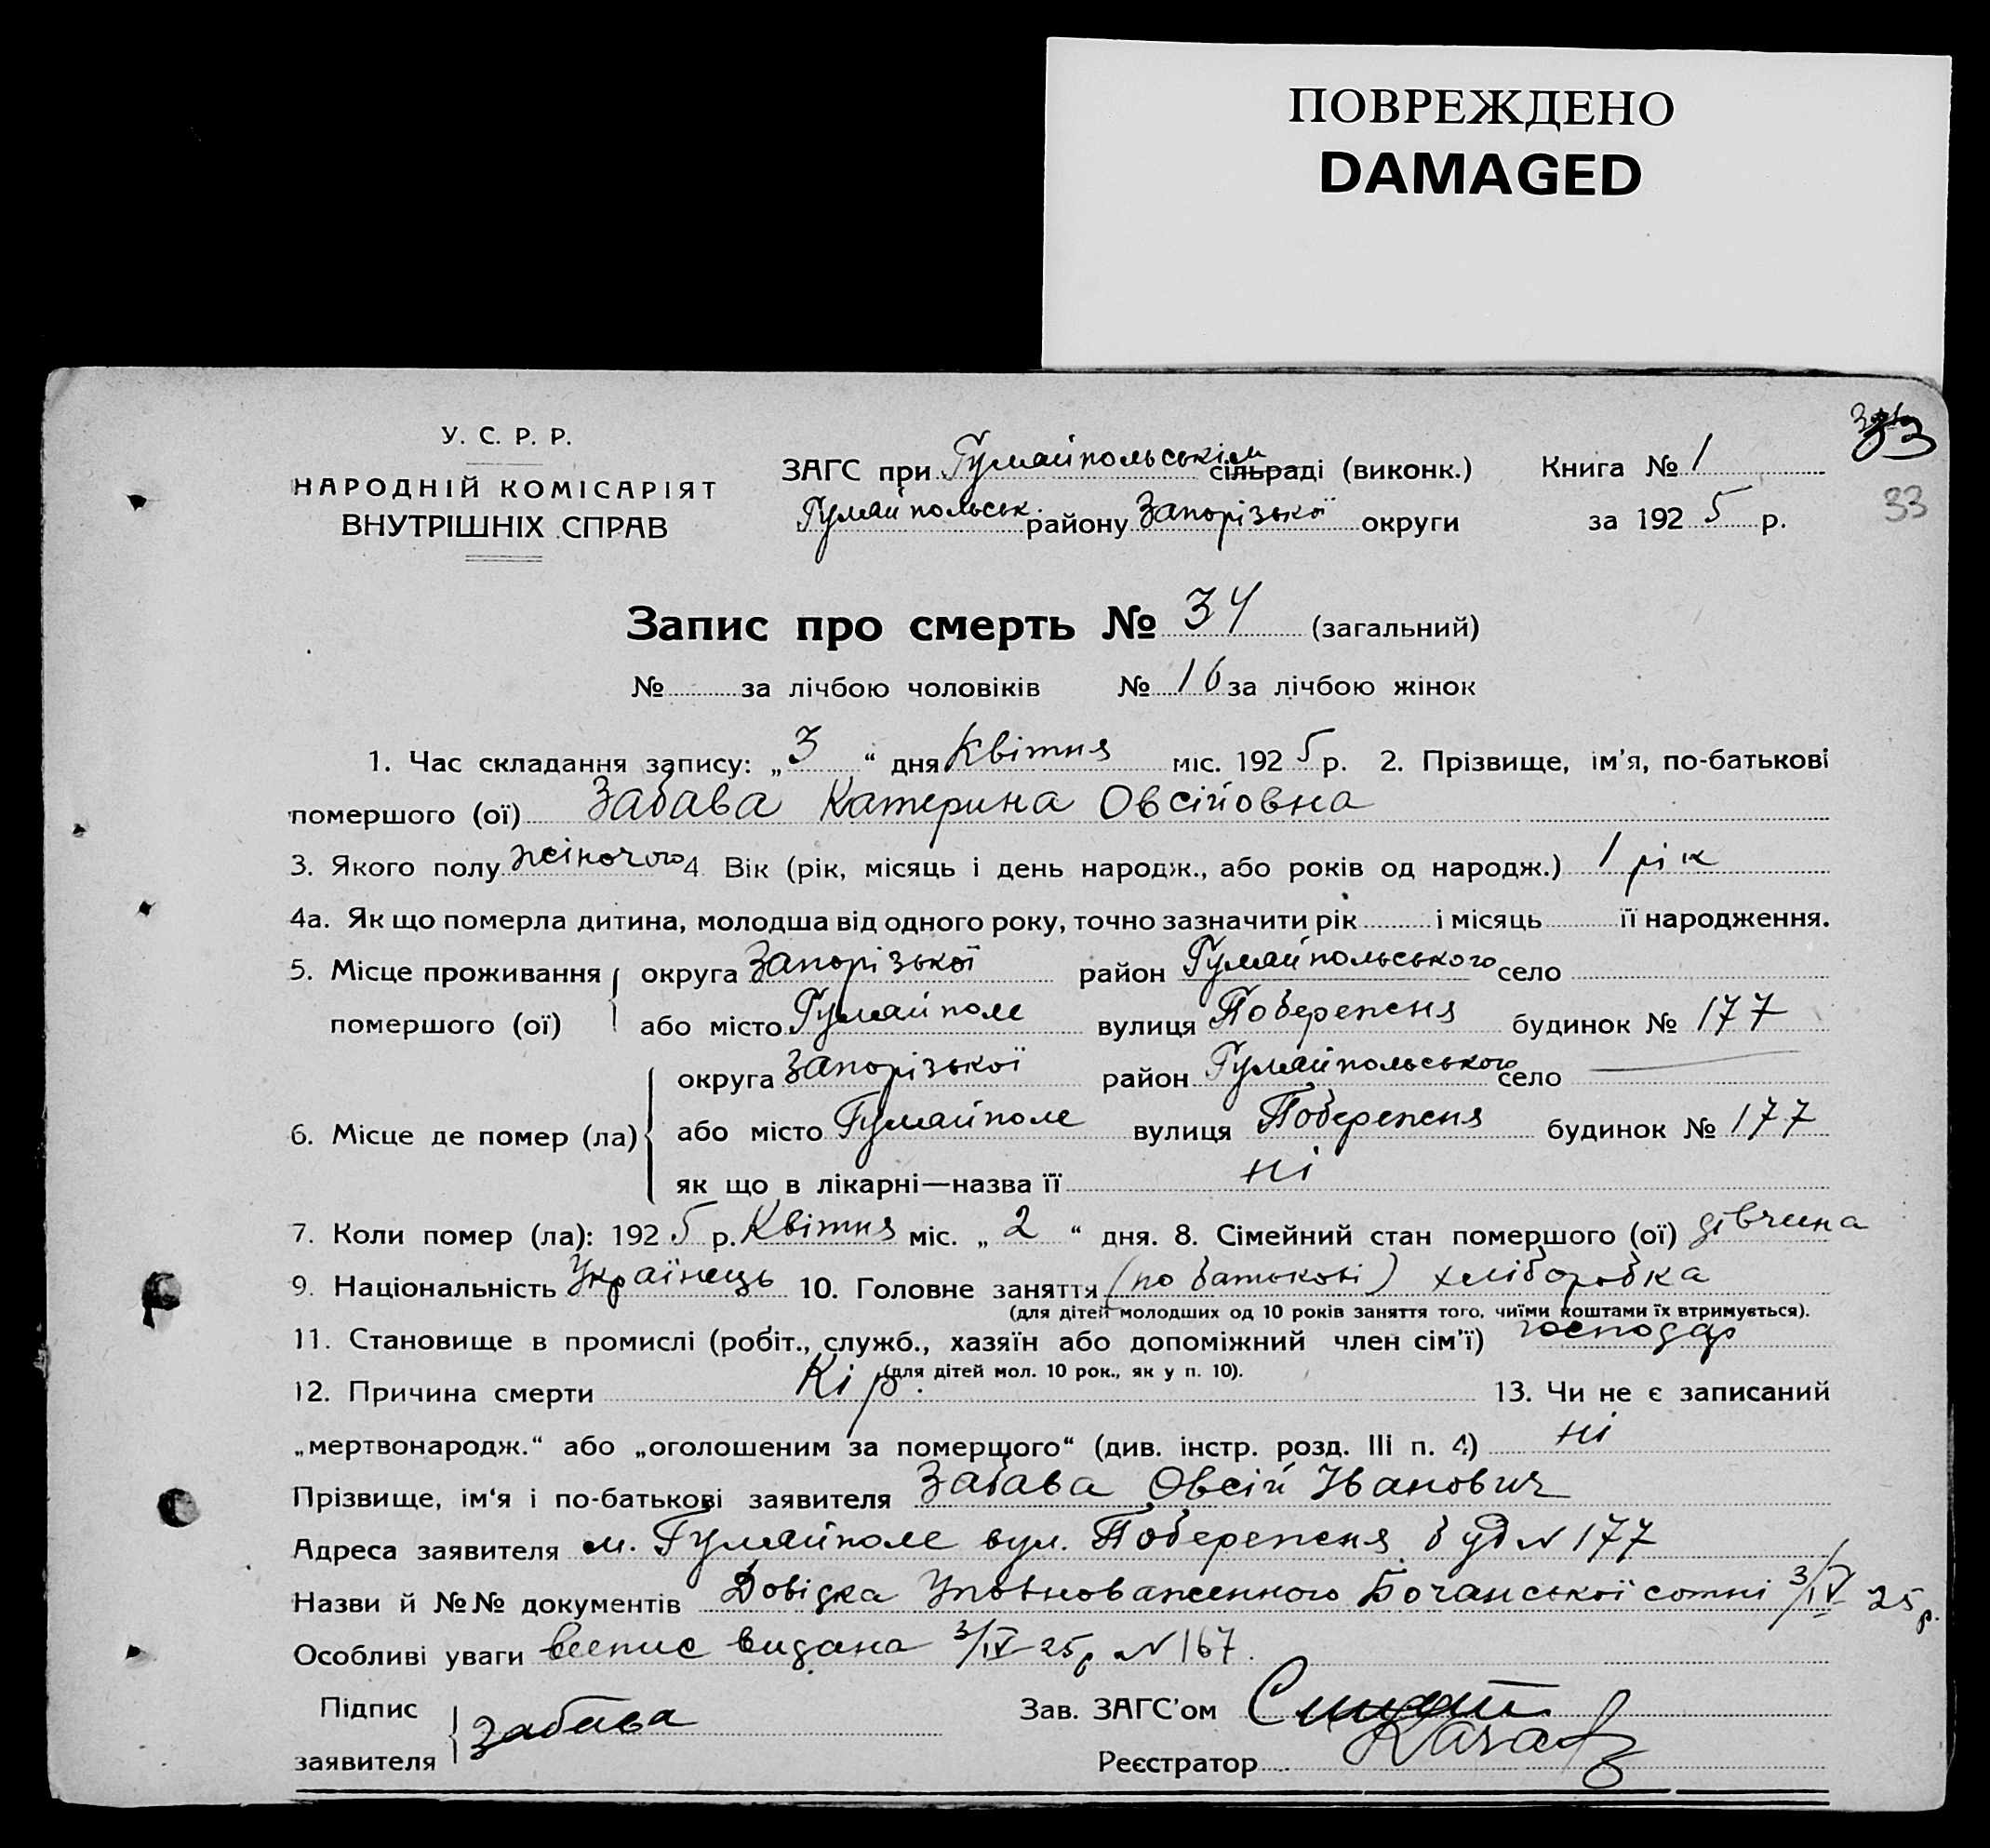 ПОВРЕЖДЕНО
DAMAGED
33
У. С. Р. Р.
НАРОДНІЙ КОМІСАРІЯТ
ВНУТРІШНІХ СПРАВ
ЗАГС при Гуляйпольськім сільраді (виконк.) Книга № 1
Гуляйпольськ. району Запорізької округи за 1925 р.
33
Запис про смерть № 34 (загальний)
№ за лічбою чоловіків № 16 за лічбою жінок
1. Час складання запису: „3“ дня Квітня міс. 1925 р. 2. Прізвище, ім’я, по-батькові
помершого (ої) Забава Катерина Овсійовна
3. Якого полу жіночого 4 Вік (рік, місяць і день народж., або років од народж.) 1 рік
4а. Як що померла дитина, молодша від одного року, точно зазначити рік і місяць її народження.
5. Місце проживання округа Запорізької район Гуляйпольського село
помершого (ої) або місто Гуляйполе вулиця Побережня будинок № 177
округа Запорізької район Гуляйпольського село
6. Місце де помер (ла) або місто Гуляйполе вулиця Побережня будинок № 177
як що в лікарні—назва її ні
7. Коли помер (ла): 1925 р. Квітня міс. „2“ дня. 8. Сімейний стан помершого (ої) дівчина
9. Національність Українець 10. Головне заняття (по батькові) хліборобка
(для дітей молодших од 10 років заняття того, чиїми коштами їх втримується).
11. Становище в промислі (робіт., служб., хазяїн або допоміжний член сім’ї) господар
(для дітей мол. 10 рок., як у п. 10).
12. Причина смерти Кір. 13. Чи не є записаний
„мертвонародж.“ або „оголошеним за помершого“ (див. інстр. розд. III п. 4) ні
Прізвище, ім‘я і по-батькові заявителя Забава Овсій Іванович
Адреса заявителя м. Гуляйполе вул. Побережня буд № 177
Назви й №№ документів Довідка Уповноваженного Бочанської сотні 3/IV 25 р.
Особливі уваги випис видана 3/IV-25 р № 167.
Підпис Зав. ЗАГС’ом
заявителя Забава
Реєстратор